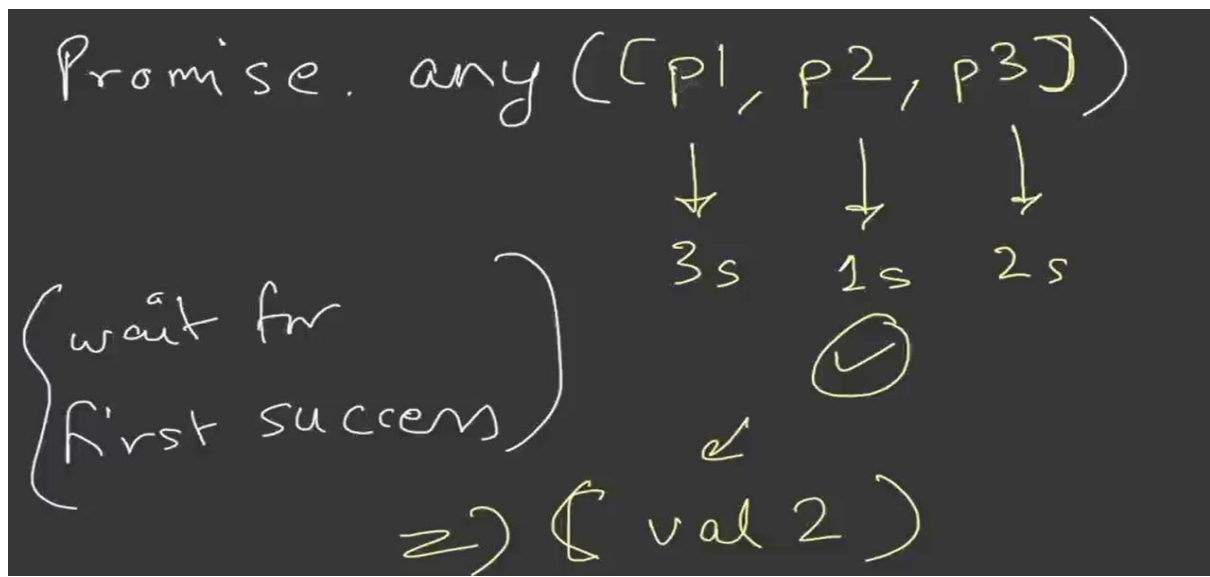 Promise. any ([p1, p2, p3])
3s 1s 2s
wait for
first success
=> ( val 2 )